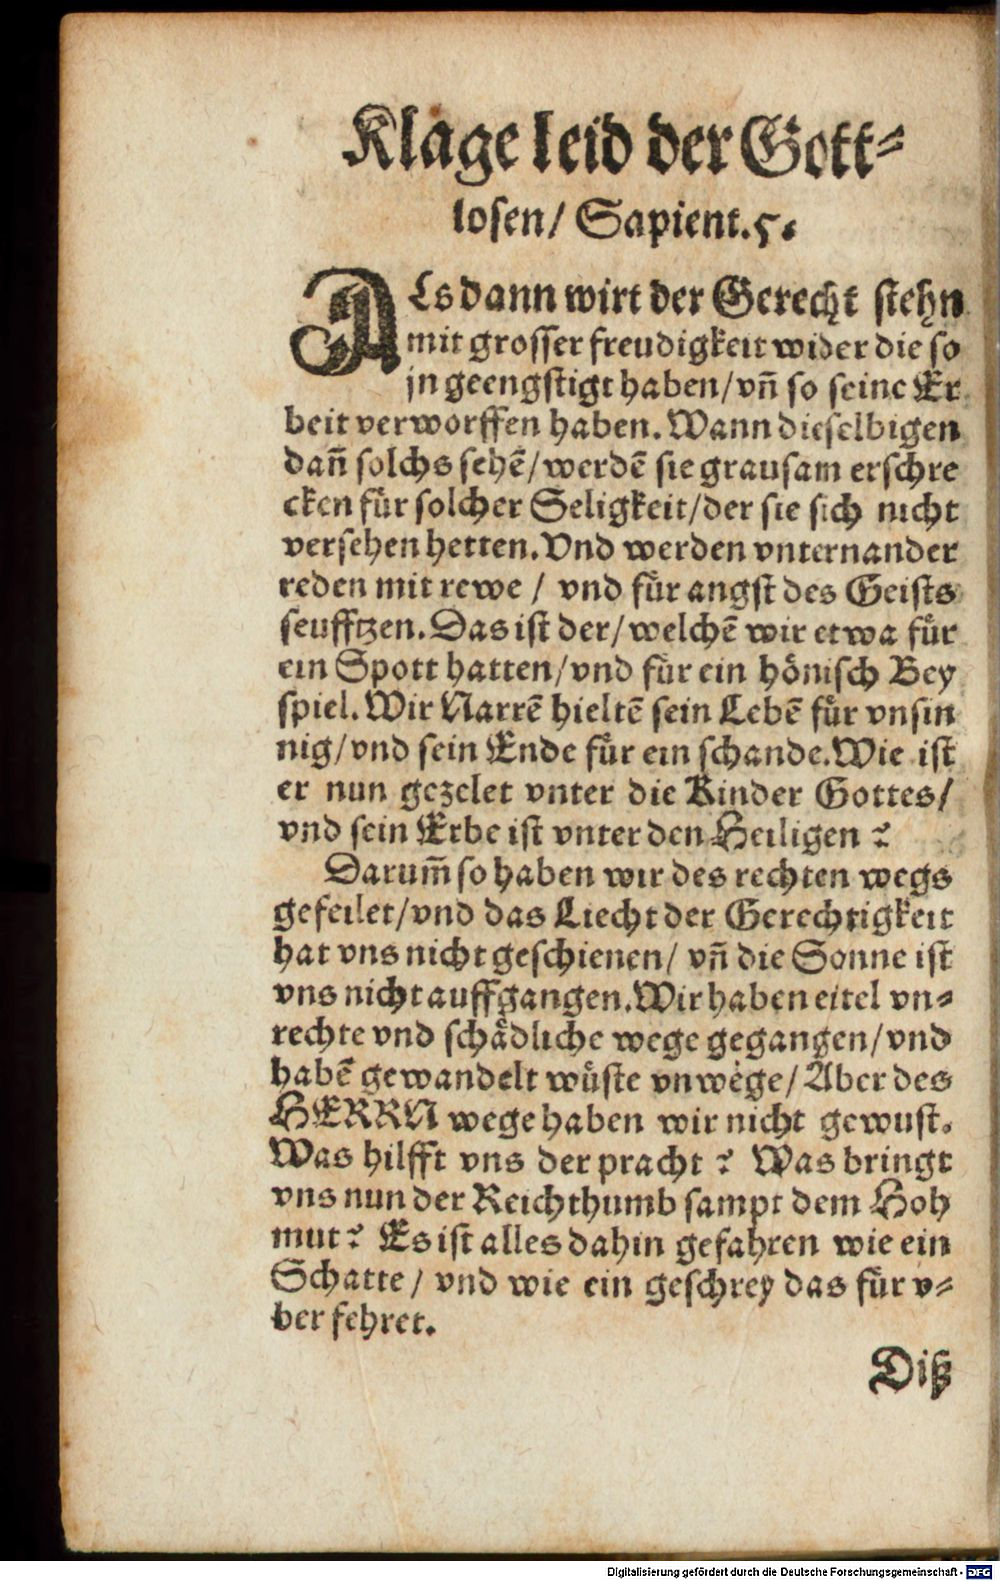 Klage leid der Gott⸗
losen/ Sapient. 5.
ALs dann wirt der Gerecht stehn
mit grosser freudigkeit wider die so
jn geengstigt haben/ vñ so seine Er
beit verworffen haben. Wann dieselbigen
dañ solchs sehē/ werdē sie grausam erschre
cken fuͤr solcher Seligkeit/ der sie sich nicht
versehen hetten. Vnd werden vnternander
reden mit rewe / vnd fuͤr angst des Geists
seufftzen. Das ist der/ welchē wir etwa fuͤr
ein Spott hatten/ vnd fuͤr ein hoͤnisch Bey
spiel. Wir Narrē hieltē sein Lebē fuͤr vnsin
nig/ vnd sein Ende fuͤr ein schande. Wie ist
er nun gezelet vnter die Kinder Gottes/
vnd sein Erbe ist vnter den Heiligen ?
Darum̄ so haben wir des rechten wegs
gefeilet/ vnd das Liecht der Gerechtigkeit
hat vns nicht geschienen/ vñ die Sonne ist
vns nicht auffgangen. Wir haben eitel vn⸗
rechte vnd schaͤdliche wege gegangen/ vnd
habē gewandelt wuͤste vnwege/ Aber des
HERRN wege haben wir nicht gewust.
Was hilfft vns der pracht ? Was bringt
vns nun der Reichthumb sampt dem Hoh
mut? Es ist alles dahin gefahren wie ein
Schatte / vnd wie ein geschrey das fuͤr v⸗
ber fehret.
Diß
Digitalisierung gefördert durch die Deutsche Forschungsgemeinschaft - DFG